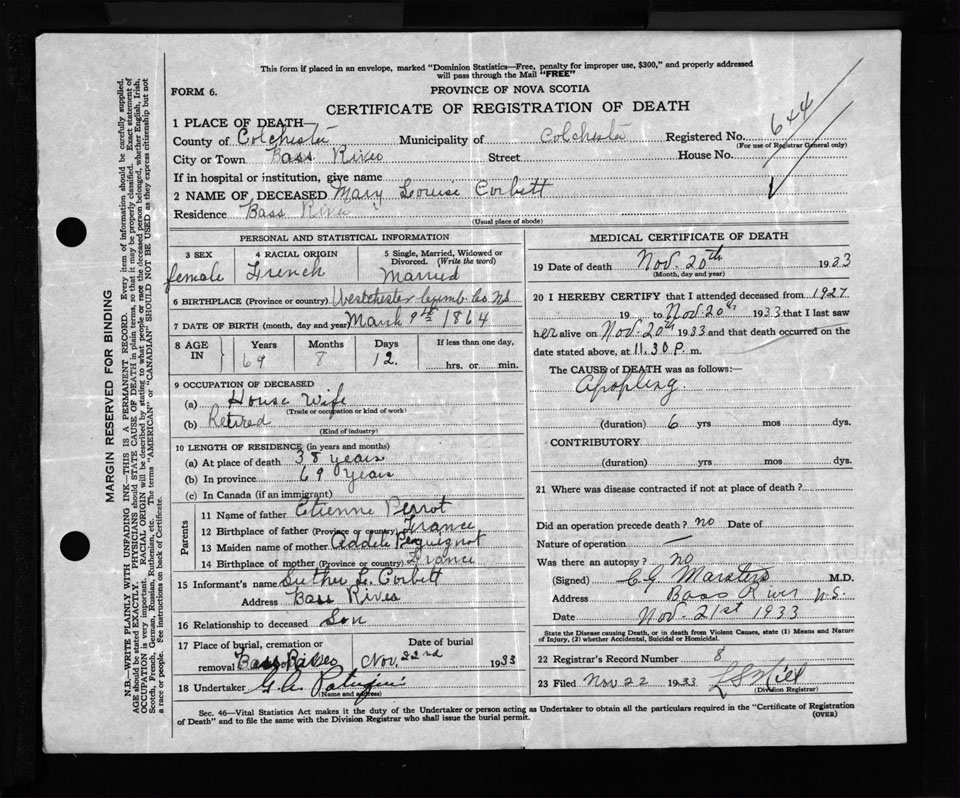 This form if placed in an envelope, marked "Dominion Statistics—Free, penalty for improper use, $300," and properly addressed
will pass through the Mail "FREE"
FORM 6.
PROVINCE OF NOVA SCOTIA
CERTIFICATE OF REGISTRATION OF DEATH
1 PLACE OF DEATH—
County of Colchester Municipality of Colchester Registered No. 644
(For use of Registrar General only)
City or Town Bass River Street House No.
If in hospital or institution, give name
2 NAME OF DECEASED Mary Louise Corbett
Residence Bass River
(Usual place of abode)
PERSONAL AND STATISTICAL INFORMATION
3 SEX
female
4 RACIAL ORIGIN
French
5 Single, Married, Widowed or
Divorced. (Write the word)
Married
6 BIRTHPLACE (Province or country) Westchester Cumb. Co. N.S.
7 DATE OF BIRTH (month, day and year) March 9th 1864
8 AGE IN
Years Months Days If less than one day,
69 8 12 hrs. or min.
9 OCCUPATION OF DECEASED
(a) House Wife
(Trade or occupation or kind of work)
(b) Retired
(Kind of industry)
10 LENGTH OF RESIDENCE (in years and months)
(a) At place of death 38 years
(b) In province 69 years
(c) In Canada (if an immigrant)
Parents
11 Name of father Etienne Perrot
12 Birthplace of father (Province or country) France
13 Maiden name of mother Addele Pequignot
14 Birthplace of mother (Province or country) France
15 Informant's name Luther L. Corbett
Address Bass River
16 Relationship to deceased Son
17 Place of burial, cremation or Date of burial
removal Bass River Nov. 22nd 1933
18 Undertaker G. A.
(Name and address)
MEDICAL CERTIFICATE OF DEATH
19 Date of death Nov. 20th 1933
(Month, day and year)
20 I HEREBY CERTIFY that I attended deceased from 1927
19 to Nov. 20th 1933 that I last saw
her alive on Nov. 20th 1933 and that death occurred on
date stated above, at 11.30 P. m.
The CAUSE of DEATH was as follows:—
(duration) 6 yrs mos dys.
CONTRIBUTORY
(duration) yrs. mos. dys.
21 Where was disease contracted if not at place of death?
Did an operation precede death? no Date of
Nature of operation —
Was there an autopsy? no
(Signed) C. G. Marsters M.D.
Address Bass River N.S.
Date Nov. 21st 1933
State the Disease causing Death, or in death from Violent Causes, state (1) Means and Nature
of Injury, (2) whether Accidental, Suicidal or Homicidal.
22 Registrar's Record Number 8
23 Filed Nov 22 1933
(Division Registrar)
Sec. 46—Vital Statistics Act makes it the duty of the Undertaker or person acting as Undertaker to obtain all the particulars required in the "Certificate of Registration
of Death" and to file the same with the Division Registrar who shall issue the burial permit. (OVER)
MARGIN RESERVED FOR BINDING
N.B.—WRITE PLAINLY WITH UNFADING INK—THIS IS A PERMANENT RECORD. Every item of information should be carefully supplied.
AGE should be stated EXACTLY. PHYSICIANS should STATE CAUSE OF DEATH in plain terms, so that it may be properly classified. Exact statement of
OCCUPATION is very important. RACIAL ORIGIN will be described by stating to what people or race the deceased person belonged, whether English, Irish,
Scotch, French, German, Russian, Ruthenian, etc. The terms "AMERICAN" or "CANADIAN" SHOULD NOT BE USED as they express citizenship but not
a race or people. See instructions on back of Certificate.